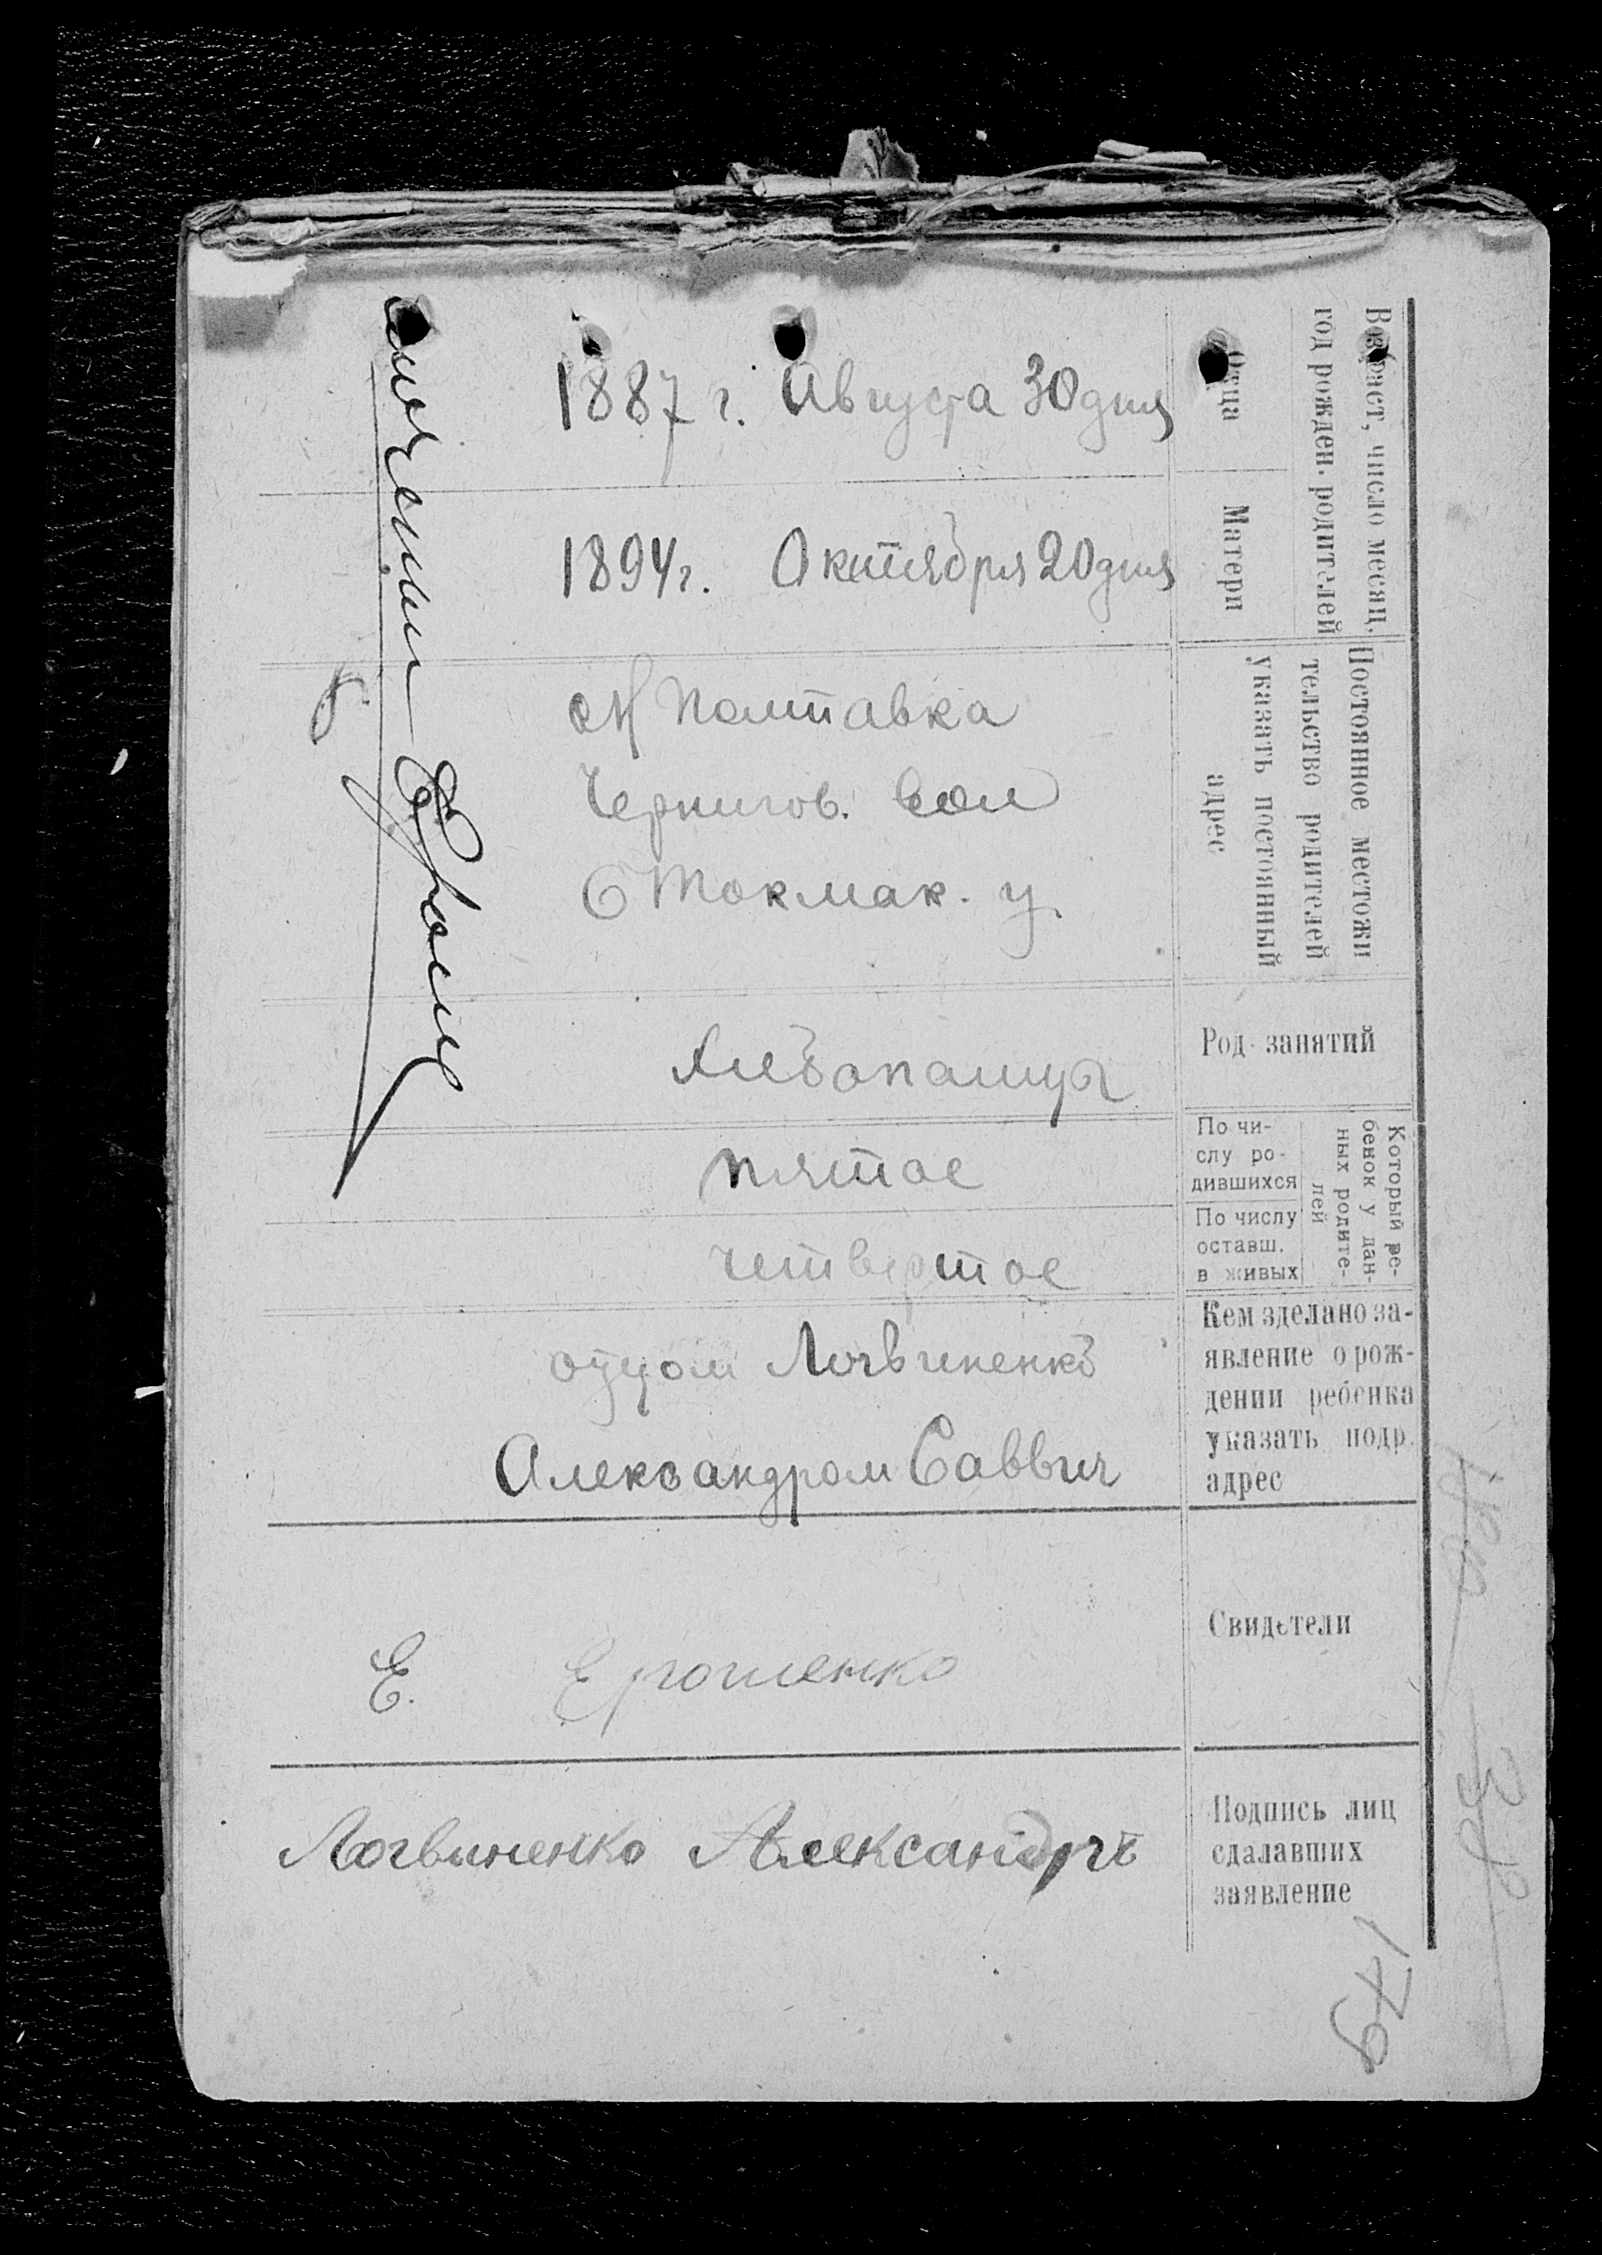 Возраст, число месяц,
год рожден. родителей
Отца
1887 г. Августа 30 дня
Матери
1894 г. Октября 20 дня
Постоянное местожи
тельство родителей
указать постоянный
адрес
Н Полтавка
Чернигов. вол
Б Токмак. у
Род занятий
Хлебопашцы
Который ре-
бенок у дан-
ных родите-
лей
По чи-
слу ро-
дившихся
пятое
По числу
оставш.
в живых
четвертое
Кем зделано за-
явление о рож-
дении ребенка
указать подр.
адрес
отцом Логвиненко
Александром Саввич
Свидетели
Е. Ерошенко
Подпись лиц
сдалавших
заявление
Логвиненко Александръ
179